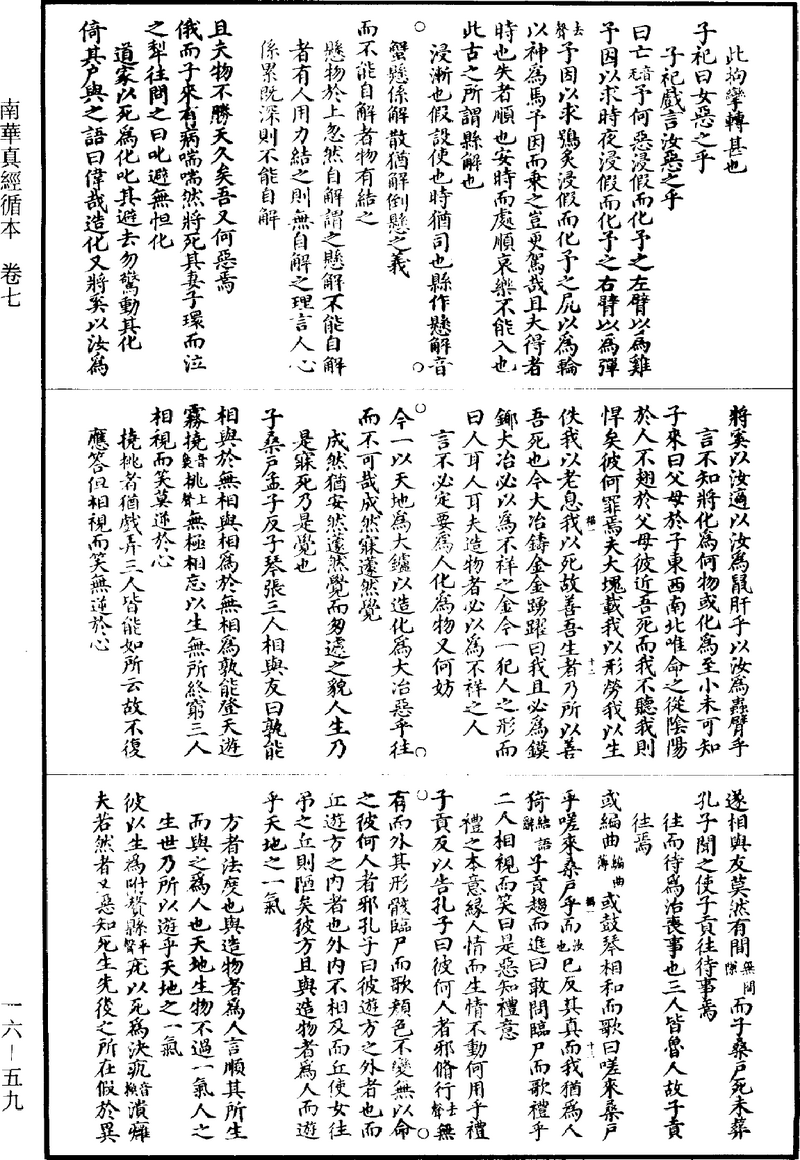 此拘攣轉甚也
子祀曰女惡之乎
子祀戲言汝惡之乎
曰亡音无予何惡浸假而化予之左臂以為雞
予因以求時夜浸假而化予之右臂以為彈
去聲予因以求鴞炙浸假而化予之尻以為輪
以神為馬予因而乘之豈更駕哉且夫得者
時也失者順也安時而處順哀樂不能入也
此古之所謂縣解也
浸漸也假設使也時猶司也縣作懸解音
蟹懸係解散猶解倒懸之義
而不能自解者物有結之
懸物於上忽然自解謂之懸解不能自解
者有人用力結之則無自解之理言人心
係累既深則不能自解
且夫物不勝天久矣吾又何惡焉
俄而子來有病喘喘然將死其妻子環而泣
之犁往問之曰叱避無怛化
道家以死為化叱其避去勿驚動其化
倚其戶與之語曰偉哉造化又將奚以汝為
將奚以汝適以汝為鼠肝乎以汝為蟲臂乎
言不知將化為何物或化為至小未可知
子來曰父母於子東西南北唯命之從陰陽
於人不翅於父母彼近吾死而我不聽我則
悍矣彼何罪焉夫大塊載我以形勞我以生
佚我以老息我以死故善吾生者乃所以善
吾死也今大冶鑄金金踴躍曰我且必為鏌
鋣大冶必以為不祥之金今一犯人之形而
曰人耳人耳夫造物者必以為不祥之人
言不必定要為人化為物又何妨
今一以天地為大鑪以造化為大冶惡乎往
而不可哉成然寐蘧然覺
成然猶安然蘧然覺而匆遽之貌人生乃
是寐死乃是覺也
子桑戶孟子反子琴張三人相與友曰孰能
相與於無相與相為於無相為孰能登天遊
霧撓挑上聲無極相忘以生無所終窮三人
相視而笑莫逆於心
撓挑者猶戲弄三人皆能如所云故不復
應答但相視而笑無逆於心
遂相與友莫然有間無間隙而子桑戶死未葬
孔子聞之使子貢往待事焉
往而待為治喪事也三人皆魯人故子貢
往焉
或編曲編曲薄或鼓琴相和而歌曰嗟來桑戶
乎嗟來桑戶乎而汝也已反其真而我猶為人
猗結語辭子貢趨而進曰敢問臨尸而歌禮乎
二人相視而笑曰是惡知禮意
禮之本意緣人情而生情不動何用乎禮
子貢反以告孔子曰彼何人者邪脩行去聲無
有而外其形骸臨尸而歌顏色不變無以命
之彼何人者邪孔子曰彼遊方之外者也而
丘遊方之內者也外內不相及而丘使女往
弔之丘則陋矣彼方且與造物者為人而遊
乎天地之一氣
方者法度也與造物者為人言順其所生
而與之為人也天地生物不過一氣人之
生世乃所以遊乎天地之一氣
彼以生為附贅縣平聲疣以死為決𤴯音換潰癰
夫若然者又惡知死生先後之所在假於異
南華真經循本 卷七
一六—五九